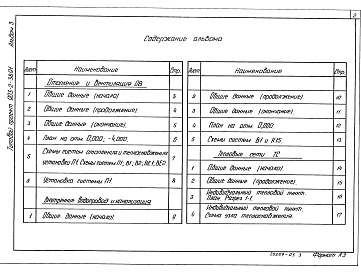 2
Альбом 3
Типовой проект
Содержание альбома
Лист Наименование Стр.
Отопление и Вентиляция ОВ
1 Общие данные (начало) 3
2 Общие данные (продолжение). 4
3 Общие данные (окончание). 5
4 План на отм. 0,000; -4,000. 6
5 Схемы систем отопления и теплоснабжения
установки П1. Схемы систем П1; В1; 7
6 Установка системы П1. 8
Внутренние водопровод и канализация
1 Общие данные (начало). 9
Лист Наименование Стр.
2 Общие данные (продолжение). 10
3 Общие данные (окончание) 11
4 План на отм. 0,000. 12
5 Схемы систем В1 и К15. 13
Тепловые сети ТС
1 Общие данные (начало). 14
2 Общие данные (продолжение). 15
3 Индивидуальный тепловой пункт.
План. Разрез 1-1. 16
4 Индивидуальный тепловой пункт.
Схема узла теплоснабжения. 17
Формат А3